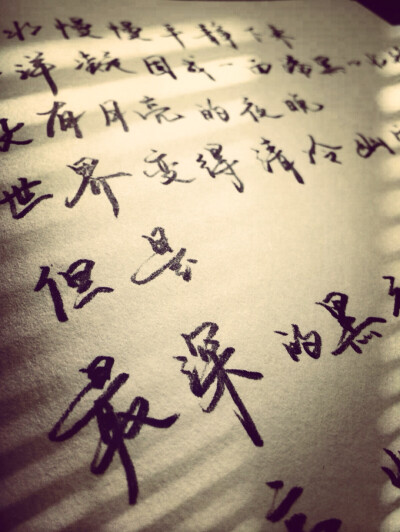 水慢慢平静下来
洋凝固成一面
有月亮的夜晚
世界变得清冷幽
但是
最深的黑